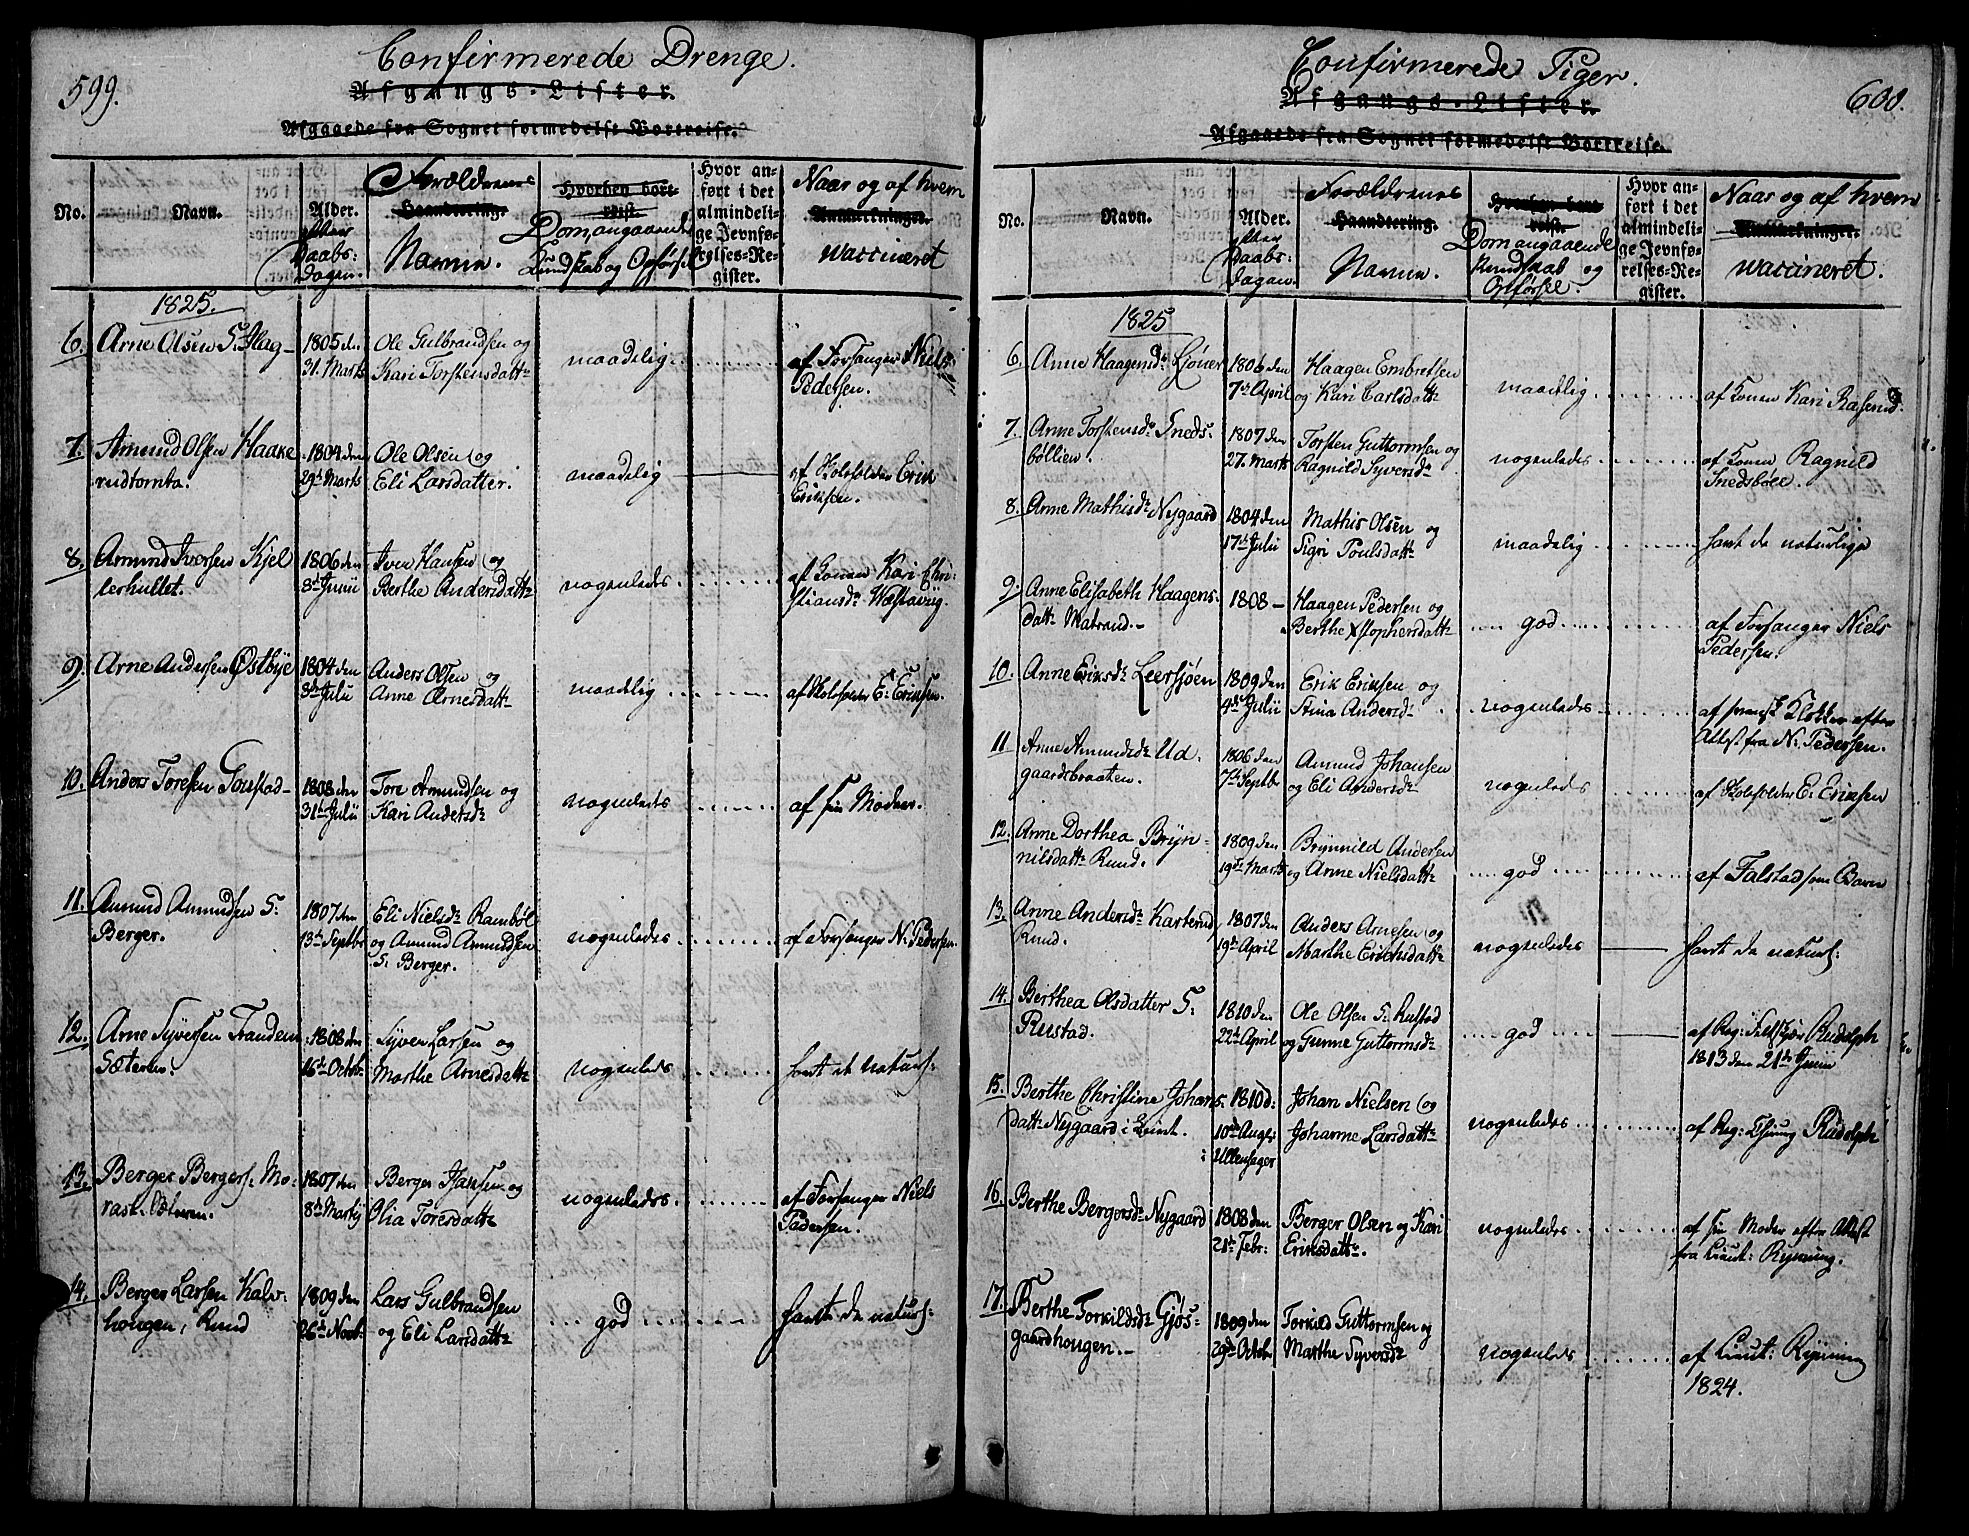 599.
Confirmerede Drenge.
Afgangs-Lister.
Afgaaede fra Sognet formedelst Bortreise.
No.
Navn.
Alder.
efter
Daabs-
Dagen.
Forældrenes
Haandtering.
Navne.
Hvorhen bort-
reist.
Dom, angaaende
Kundskab og Opførsel
Hvor an-
ført i det
almindeli-
ge Jevnfø-
relses-Re-
gister.
Naar og af hvem
Anmærkninger.
vaccineret
1825.
6. Arne Olsen S. Flag-
1805 d.
31. Marts
Ole Gulbrandsen og
Kari Torstensdattr
maadelig
af Forsanger Niels
Pedersen.
7. Amund Olsen Haake-
rudtomta.
1804 den
29de Marts
Ole Olsen og
Eli Larsdatter.
maadelig
af Kolfolder Erik
Eriksen.
8. Amund Iversen Kjel-
lerhullet.
1806 den
8de Junii
Iver Hansen og
Berthe Andersdattr
nogenledes
af Konen Kari Chri-
stiansdr Westavig.
9. Arne Andersen Østbye
1804 den
3die Julii
Anders Olsen og
Anne Arnesdattr
maadelig
af Kolfolder E. Eriksen.
10. Anders Toresen Gonstad-
1808 den
31te Julii
Tore Amundsen og
Kari Andersdr
nogenleds
af sin Moder.
11. Amund Amundsen S.
Berger.
1807 den
13de Septbr
Eli Nielsdr Rambøl
og Amund Amundsen
S. Berger.
nogenledes
af Forsanger N. Pedersen.
12. Arne Syversen Trandem
Sæteren.
1808 den
16de Octobr
Syver Larsen og
Marthe Arnesdattr
nogenleds
havt de naturl:
13. Berger Bergers. Mo-
rast-Sæteren.
1807 den
8de Martij
Berger Hansen og
Olia Toresdattr
nogenledes.
af Forsanger Niels
Pedersen.
14. Berger Larsen Kalv-
hougen, Rund
1809 den
26de Novbr
Lars Gulbrandsen
og Eli Larsdattr
god
havt de naturl:
600.
Confirmerede Piger.
Afgangs-Lister.
Afgaaede fra Sognet formedelst Bortreise.
No.
Navn.
Alder.
efter
Daabs-
Dagen.
Forældrenes
Haandtering.
Navne.
Hvorhen bort-
reist.
Dom angaaende
Kundskab og
Opførsel.
Hvor an-
ført i det
almindeli-
ge Jevnfø-
relses-Re-
gister.
Naar og af hvem
Anmærkninger.
vaccineret.
1825
6. Anne Haagensdr Ljøner
1806 den
7de April
Haagen Embretsen
og Kari Carlsdattr
maadlig
af Konen Kari Rasend
7. Anne Torstensdr Sneds-
böllien.
1807 den
27. Marts
Torsten Guttormsen og
Ragnild Syversdr
nogenledes
af Konen Ragnild
Snedsböle.
8. Anne Mathisdr Nygaard
1804 den
17de Julii
Mathis Olsen og
Sigri Poulsdattr
maadelig
havt de naturlige
9. Anne Elisabeth Haagens-
dattr Matrand.-
1808 -
Haagen Pedersen og
Berthe Xstophersdattr
god
af Forsanger Niels
Pedersen.
10. Anne Eriksdr Leersjøen
1809 den
4de Julii
Erik Eriksen og
Stina Andersd-
nogenledes
af svensk Klokker efter
Attest fra N. Pedersen.
11 Anne Amundsdr Ud-
gaardsbraaten.
1806 den
7de Septbr
Amund Johansen
og Eli Andersdr
nogenledes
af Kolfolder E. Eriksen
12. Anne Dorthea Bryn-
nilsdattr Rund.
1809 den
19de Marts
Brynnild Andersen
og Anne Nielsdattr
god
af Falstad som Barn
13. Anne Andersdr Karterud
Rund.
1807 den
19de April
Anders Arnesen og
Marthe Erichsdattr
nogenledes
havt de naturl:
14. Berthea Olsdatter S.
Rustad.
1810 den
22de April
Ole Olsen S. Rustad
og Gunne Guttormsdr
god
af Reg: Feltskjær Rudolph
1813 den 21de Junii
15. Berthe Christine Johans-
dattr Nygaard i Eeint.
1810 d:
10de Aug:
i Ullensager
Johan Nielsen og
Johanne Larsdattr
nogenledes
af Reg: Chirurg Rudolph
16. Berthe Bergersdr Nygaard
1808 den
21de Febr:
Berger Olsen og Kari
Eriksdattr.
nogenledes
af sin Moder efter Attest
fra Lieut: Rynning.
17. Berthe Torkildsdr Gjøs-
gaardhougen.-
1809 den
29de Octobr
Torkild Guttormsen og
Marthe Syversdr
nogenleds
af Lieut: Rynning
1824.